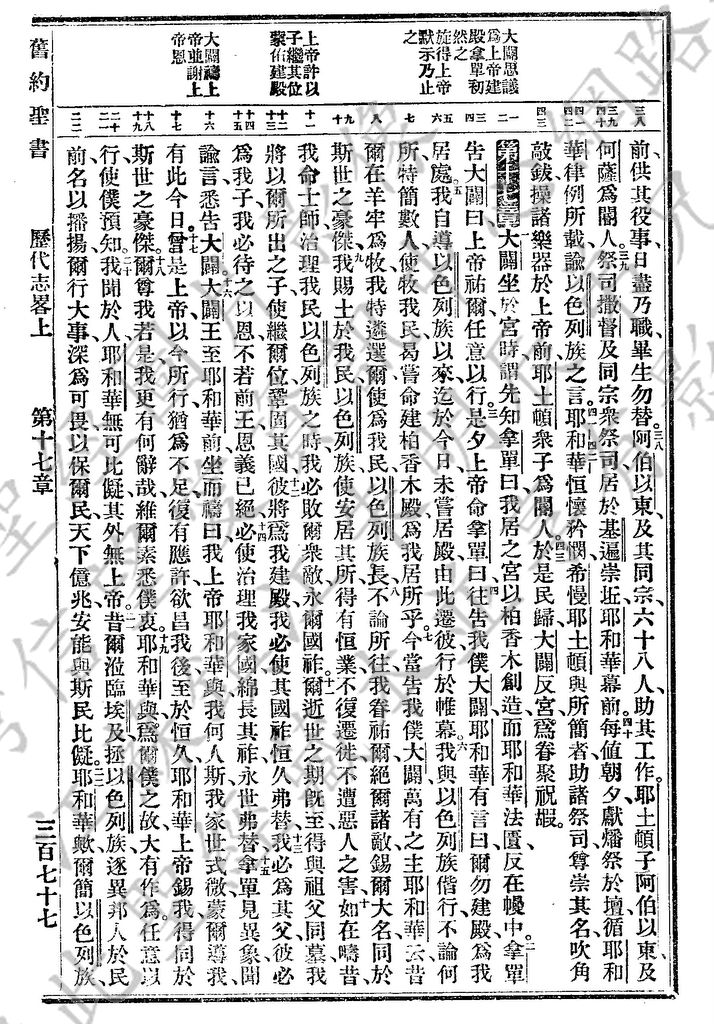 大闢思議
爲上帝建
殿拿單初
然之
旋得上帝
默示乃止
之
上帝許以
子繼其位
蒙佑建殿
大闢禱上
帝並謝上
帝恩
前供其役事、日盡乃職、畢生勿替、阿伯以東及其同宗六十八人助其工作、耶土頓子阿伯以東及
何薩爲閽人。祭司撒督及同宗衆祭司居於基遍崇坵耶和華幕前、每値朝夕、獻燔祭於壇、循耶和
華律例所載、諭以色列族之言。耶和華恒懷矜憫、希慢耶土頓與所簡者、助諸祭司尊崇其名、吹角
敲鈸、操諸樂器於上帝前、耶土頓衆子爲閽人。於是民歸、大闢反宮、爲眷聚祝嘏。
第十七章 大闢坐於宮時、謂先知拿單曰、我居之宮、以柏香木創造、而耶和華法匱反在幔中。拿單
告大闢曰、上帝祐爾、任意以行。是夕上帝命拿單曰、往告我僕大闢、耶和華有言曰、爾勿建殿爲我
居處、我自導以色列族以來、迄於今日、未嘗居殿、由此遷彼、行於帷幕。我與以色列族偕行、不論何
所、特簡數人使牧我民、曷嘗命建柏香木殿、爲我居所乎。今當告我僕大闢、萬有之主耶和華云、昔
爾在羊牢爲牧、我特遴選爾、使爲我民以色列族長、不論所往、我眷祐爾、絕爾諸敵、錫爾大名、同於
斯世之豪傑。我賜土於我民以色列族、使安居其所、得有恒業、不復遷徙、不遭惡人之害、如在疇昔、
我命士師治理我民以色列族之時、我必敗爾衆敵、永爾國祚。爾逝世之期旣至、得與祖父同墓、我
將以爾所出之子、使繼爾位、鞏固其國、彼將爲我建殿、我必使其國祚、恒久弗替、我必爲其父、彼必
爲我子、我必待之以恩、不若前王恩義已絕、必使治理我家國、綿長其祚、永世弗替。拿單見異象聞
諭言、悉告大闢。大闢王至耶和華前、坐而禱曰、我上帝耶和華與、我何人斯、我家世式微、蒙爾導我、
有此今日、曾是上帝以今所行、猶爲不足、復有應許、欲昌我後、至於恒久、耶和華上帝錫我、得同於
斯世之豪傑。爾尊我若是、我更有何辭哉、維爾素悉僕衷、耶和華與、爲爾僕之故、大有作爲、任意以
行、使僕預知。我聞於人、耶和華無可比儗、其外無上帝。昔爾涖臨埃及、拯以色列族、逐異邦人於民
前、名以播揚、爾行大事、深爲可畏、以保爾民、天下億兆、安能與斯民比儗。耶和華歟、爾簡以色列族、
舊約聖書 歷代志畧上 第十七章 三百七十七